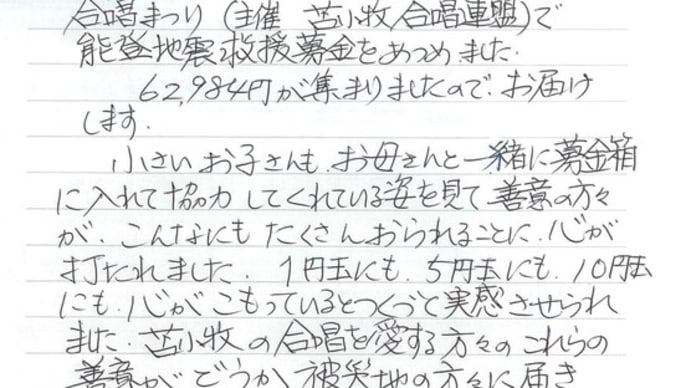 合唱まつり（主催 苫小牧合唱連盟）で
能登地震救援募金をあつめました.
62,984円が集まりましたので、お届け
します.
小さいお子さんも、お母さんと一緒に募金箱
に入れて協力してくれている姿を見て善意の方々
が、こんなにもたくさんおられることに、心が
打たれました. 1円玉にも、5円玉にも、10円玉
にも、心がこもっているとつくづく実感させられ
ました. 苫小牧の合唱を愛する方々のこれらの
善意がどうか被災地の方々に届き